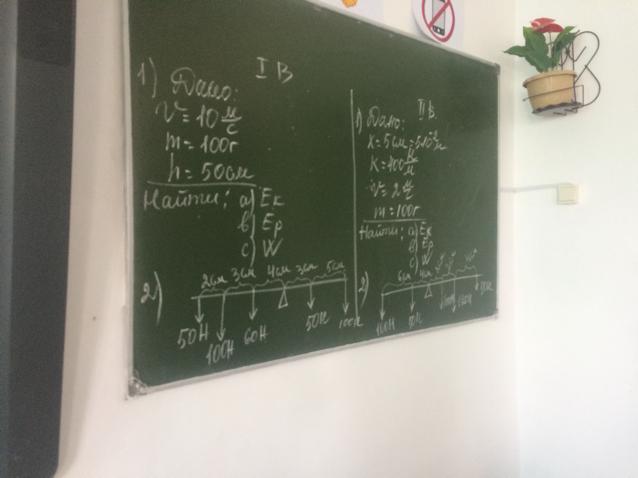 I В
1) Дано:
V = 10 м/с
m = 100г
h = 50см
Найти: a) Eк
b) Ep
c) W
2)
2см 3см 4см 3см 5см
50Н 100Н 60Н 50Н 100Н
II В.
1) Дано:
x = 5см = 5·10⁻²м
K = 100 Н/м
v = 2 м/с
m = 100г
Найти: a) Eк
b) Ep
c) W
2)
6см 4см
100Н